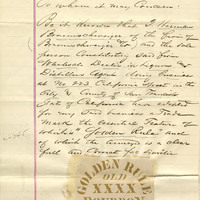 To whom it may Concern:
Be it known that I Herman
Braunschweiger of the firm of
Braunschweiger & Co the sole
person Constituting said firm
Wholesale Dealer in Liquors &
Distillers Agent doing business
at No 223 California Street in the
City & County of San Francisco
State of California have adopted
for my said business a Trade
Mark the Essential Feature of
which is "Golden Rule" and
of which the annexed is a clear
full and Correct fac-simile
GOLDEN RULE
OLD
XXXX
BOURBON